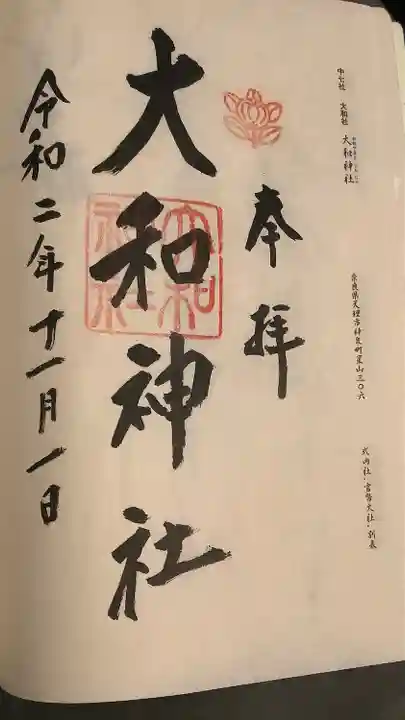 中七社 大和社 大和神社
奈良県天理市新泉町星山三〇六
式内社・官幣大社・別表
奉拝
大和神社
大和神社
令和二年十一月一日